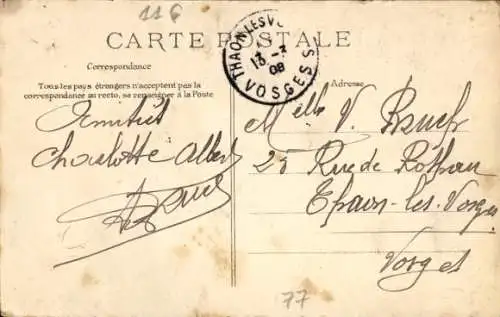 116
CARTE POSTALE
THAON-LES-VOSGES
13 -3
08
VOSGES
Correspondance
Tous les pays étrangers n'acceptent pas la
correspondance au recto, se renseigner à la Poste
Adresse
Amitiés
Charlotte Albert
Melle V.
25 Rue de
Thaon-les-Vosges
Vosges
77